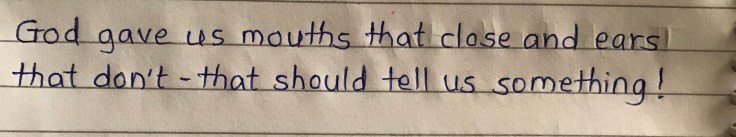 God gave us mouths that close and ears
that don't - that should tell us something!